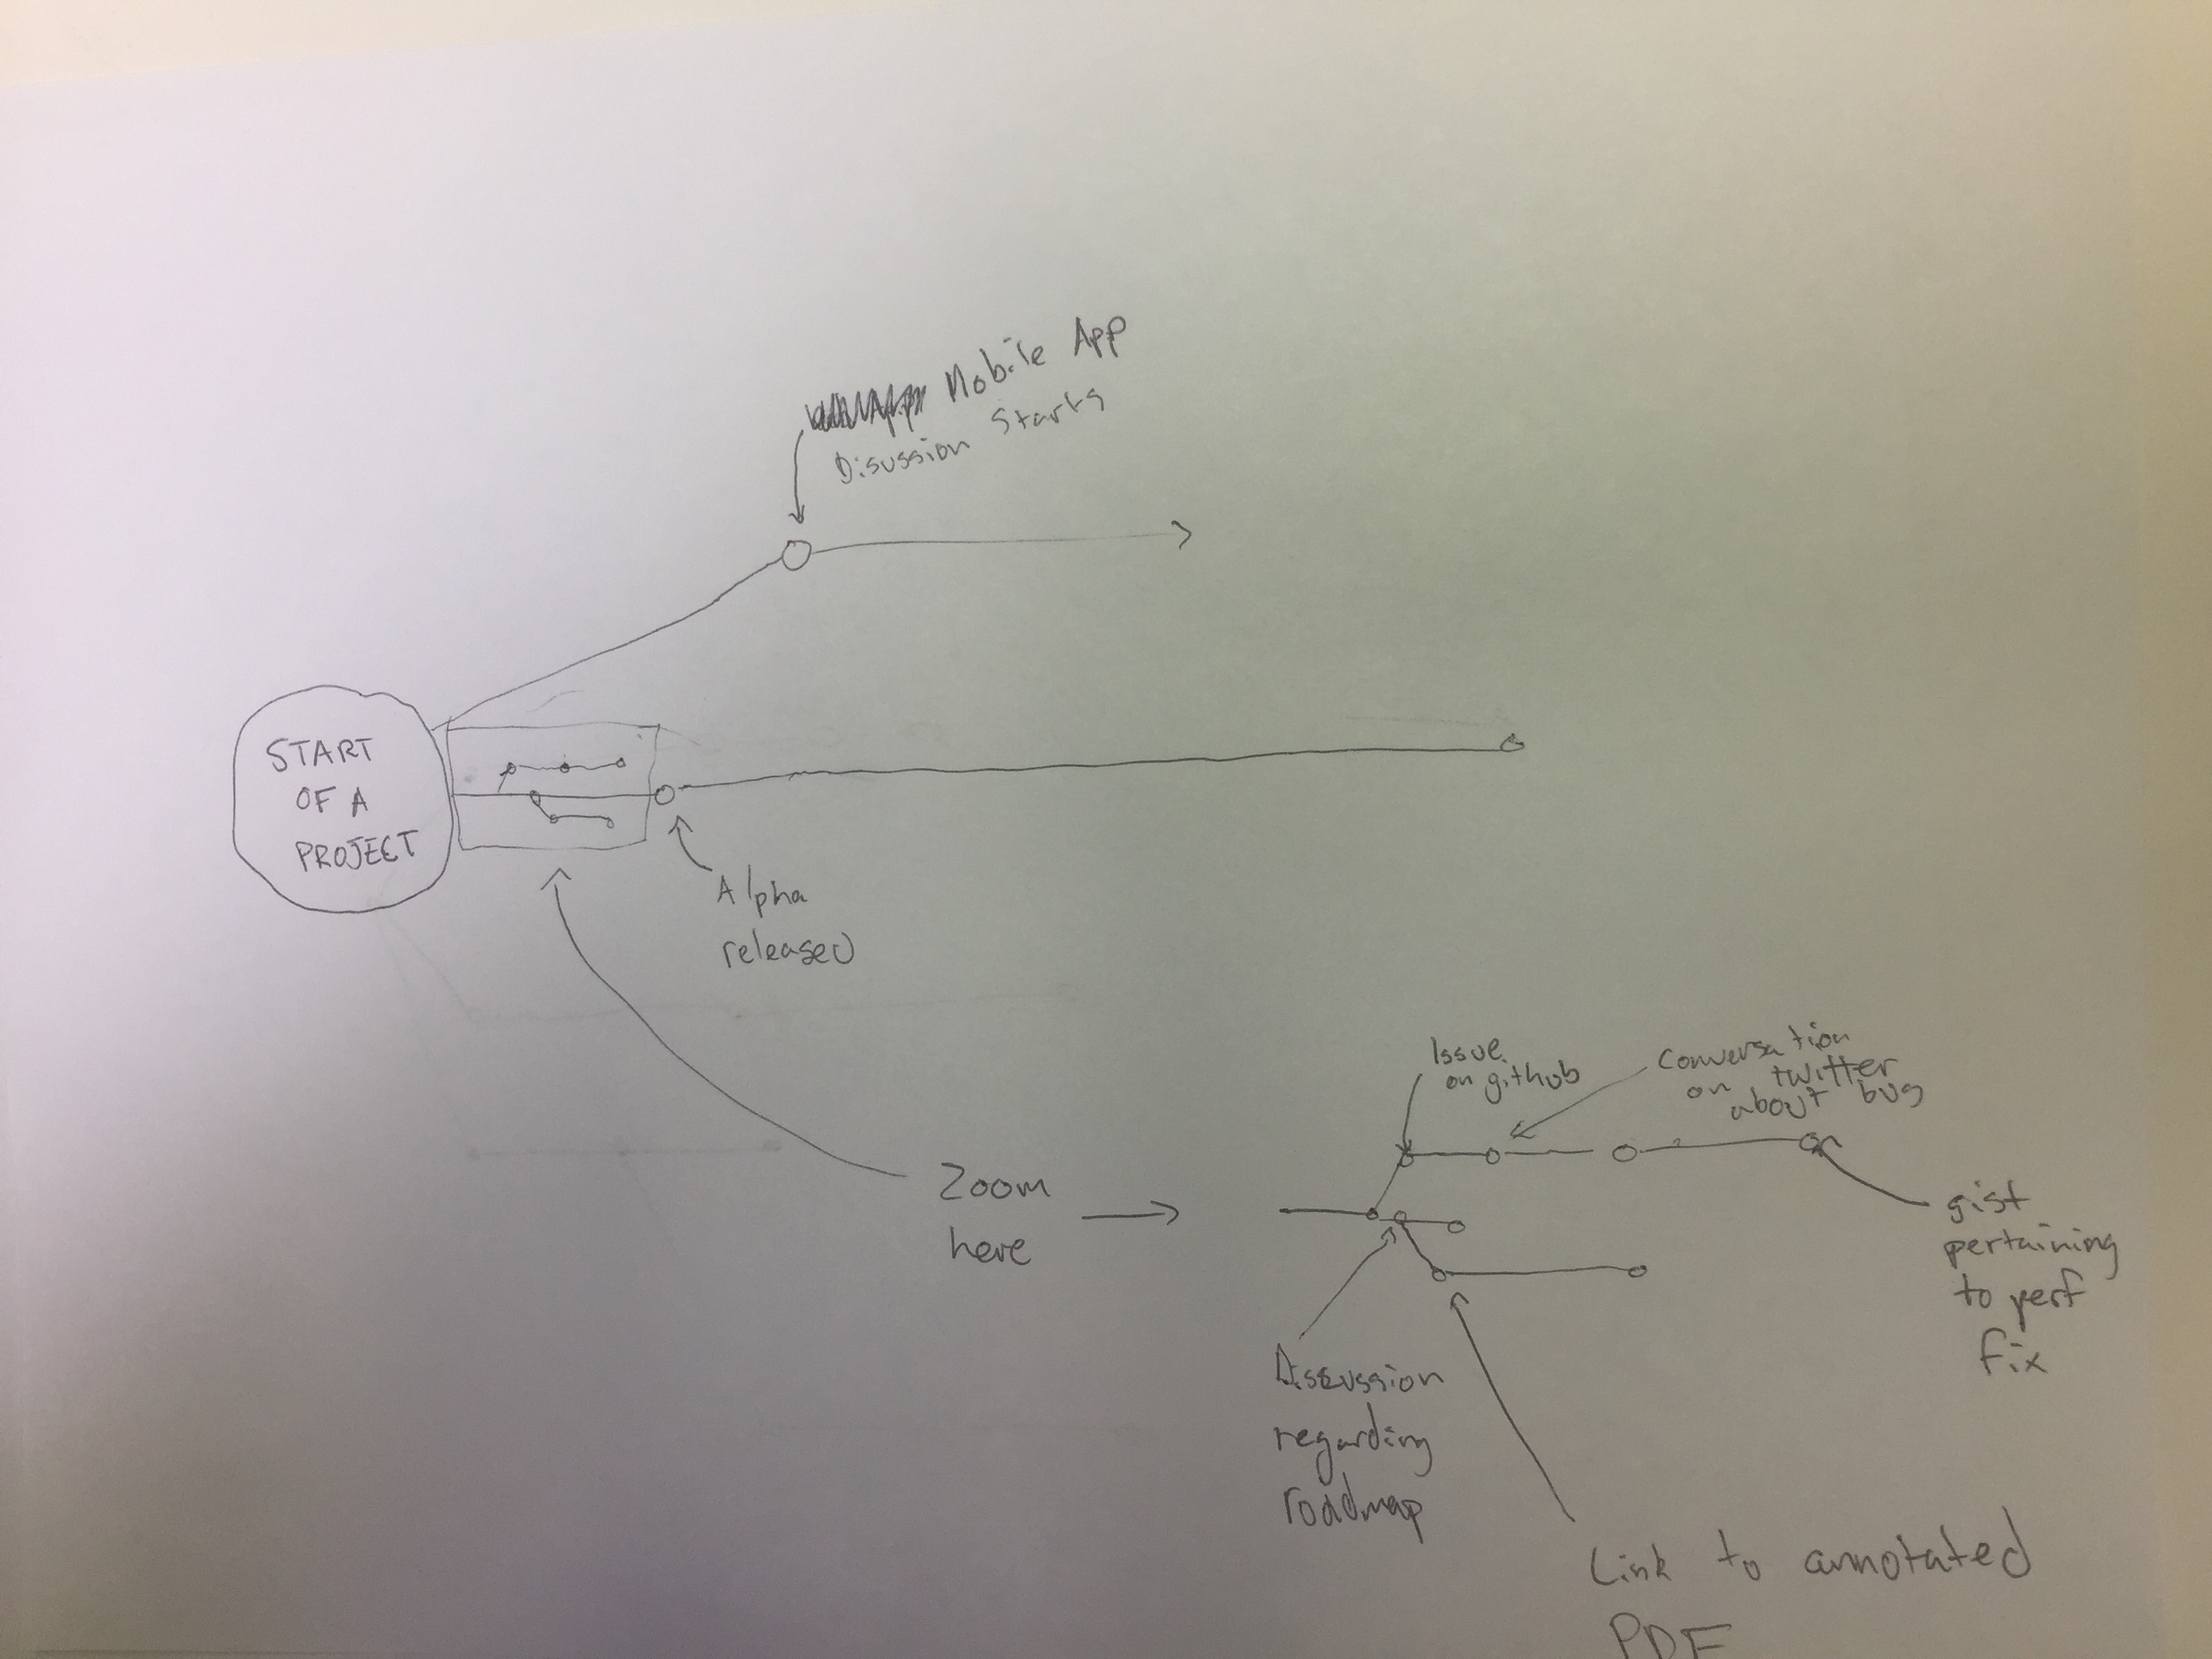 Mobile App
Disussion Starts
START
OF A
PROJECT
Alpha
released
Zoom
here
Issue
on github
Conversation
on twitter
about bug
gist
pertaining
to perf
fix
Discussion
regarding
roadmap
Link to annotated
PDF